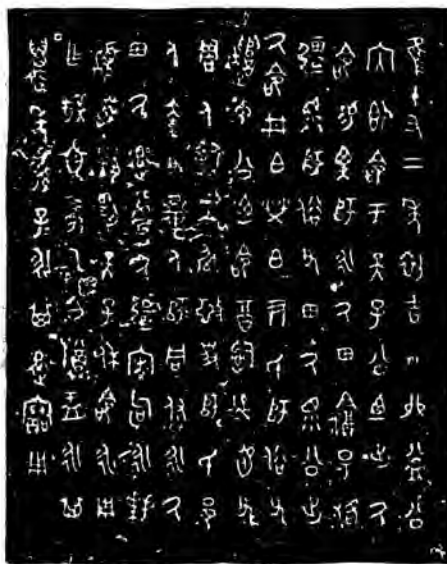 隹十又二年初吉丁卯益公
內即命于天子公迺出氒
命易畀師永氒田陰昜洛
疆眔師俗父田氒眔公出
氒命井白榮白尹氏師俗父
遣中公迺命司徒父
周人司工亞史師氏邑
人奎父畢人師同付永氒
田氒率氒疆宋句永拜
稽首對揚天子休命永用
乍朕文考乙白尊盂永其
萬年孫孫子子永其率寶用